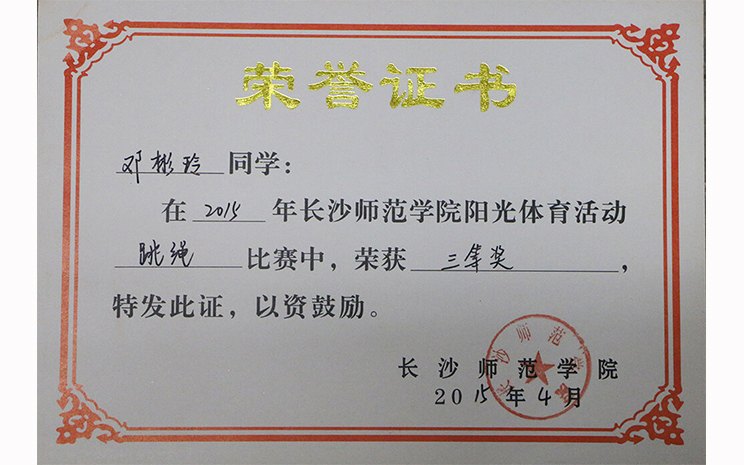 荣誉证书
邓彬玲同学：
在2015年长沙师范学院阳光体育活动
跳绳比赛中，荣获三等奖，
特发此证，以资鼓励。
长沙师范学院
长沙师范学院
2015年4月